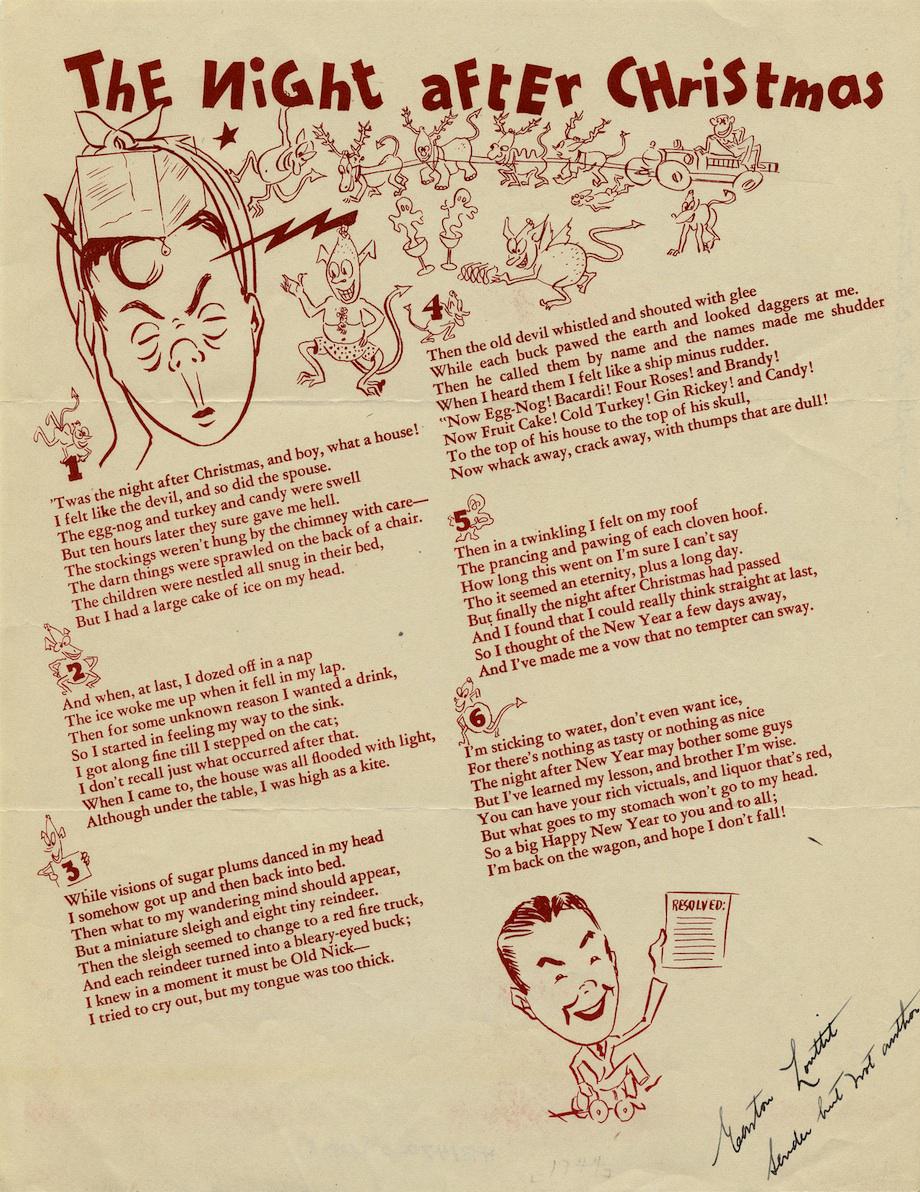 The Night after Christmas
1
'Twas the night after Christmas, and boy, what a house!
I felt like the devil, and so did the spouse.
The egg-nog and turkey and candy were swell
But ten hours later they sure gave me hell.
The stockings weren't hung by the chimney with care—
The darn things were sprawled on the back of a chair.
The children were nestled all snug in their bed,
But I had a large cake of ice on my head.
2
And when, at last, I dozed off in a nap
The ice woke me up when it fell in my lap.
Then for some unknown reason I wanted a drink,
So I started in feeling my way to the sink.
I got along fine till I stepped on the cat;
I don't recall just what occurred after that.
When I came to, the house was all flooded with light,
Although under the table, I was high as a kite.
3
While visions of sugar plums danced in my head
I somehow got up and then back into bed.
Then what to my wandering mind should appear,
But a miniature sleigh and eight tiny reindeer.
Then the sleigh seemed to change to a red fire truck,
And each reindeer turned into a bleary-eyed buck;
I knew in a moment it must be Old Nick—
I tried to cry out, but my tongue was too thick.
4
Then the old devil whistled and shouted with glee
While each buck pawed the earth and looked daggers at me.
Then he called them by name and the names made me shudder
When I heard them I felt like a ship minus rudder.
"Now Egg-Nog! Bacardi! Four Roses! and Brandy!
Now Fruit Cake! Cold Turkey! Gin Rickey! and Candy!
To the top of his house to the top of his skull,
Now whack away, crack away, with thumps that are dull!
5
Then in a twinkling I felt on my roof
The prancing and pawing of each cloven hoof.
How long this went on I'm sure I can't say
Tho it seemed an eternity, plus a long day.
But finally the night after Christmas had passed
And I found that I could really think straight at last,
So I thought of the New Year a few days away,
And I've made me a vow that no tempter can sway.
6
I'm sticking to water, don't even want ice,
For there's nothing as tasty or nothing as nice
The night after New Year may bother some guys
But I've learned my lesson, and brother I'm wise.
You can have your rich victuals, and liquor that's red,
But what goes to my stomach won't go to my head.
So a big Happy New Year to you and to all;
I'm back on the wagon, and hope I don't fall!
RESOLVED:
Easton Louttit
Sender but not author